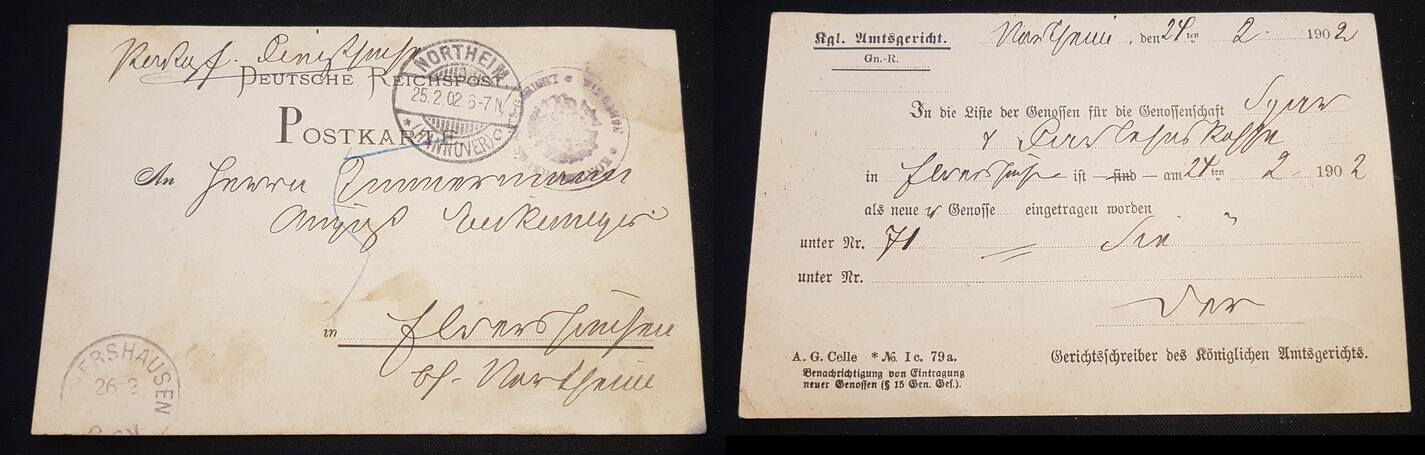 Deutsche Reichspost
Postkarte
NORTHEIM
25.2.02 6-7N
*(HANNOVER)C
An Herrn Zimmermann
August
in Elvershausen
bh. Northeim
ERSHAUSEN
26
Kgl. Amtsgericht. Northeim, den 24ten 2. 1902
Gn.-R.
In die Liste der Genossen für die Genossenschaft Spar
& Darlehnskasse
in Elvershausen ist – sind – am 24ten 2. 1902
als neuer Genosse eingetragen worden
unter Nr. 71 Sie
unter Nr.
Der
Gerichtschreiber des Königlichen Amtsgerichts.
A. G. Celle * No. I c. 79a.
Benachrichtigung von Eintragung
neuer Genossen (§ 15 Gen. Ges.).